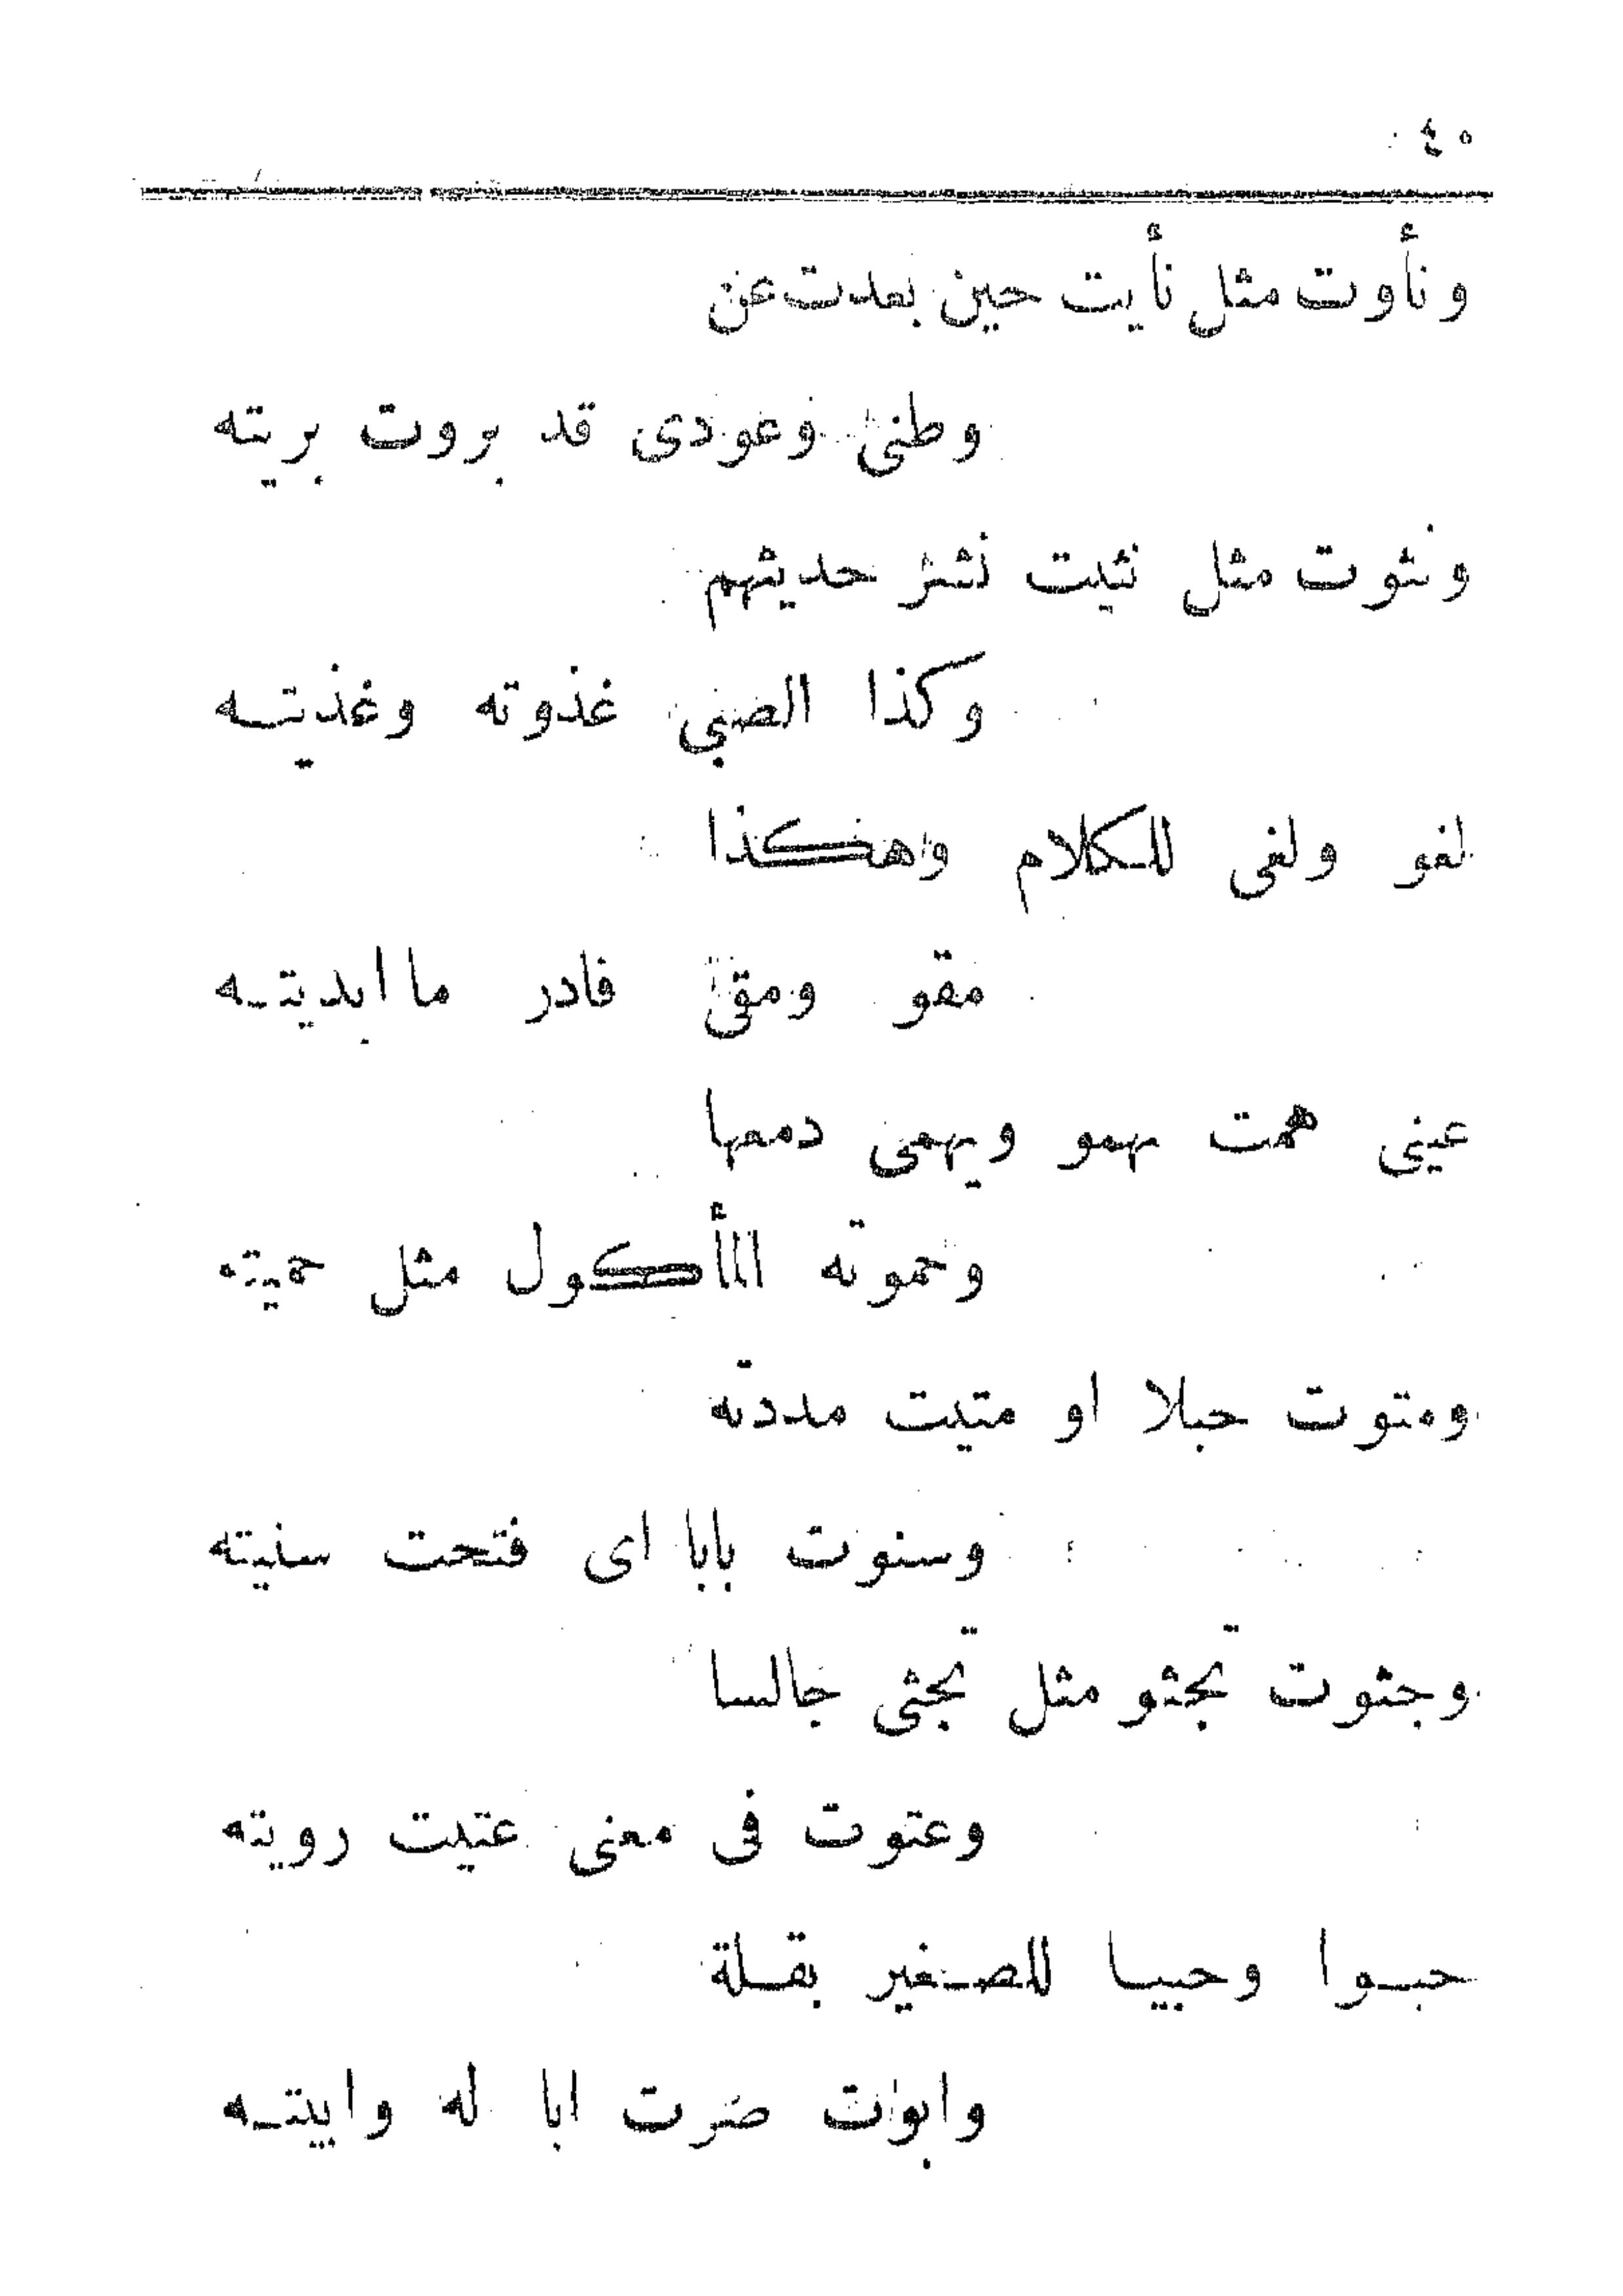 ٤٠
ونأوت مثل نأيت حين بعدت عن
وطنى وعودى قد بروت بريته
ونثوت مثل نثيت نشر حديثهم
وكذا الصبي غذوته وغذيتـه
لغو ولغى للكلام وهكذا
مقو ومقى فادر ما ابديتـه
عينى همت يهمو ويهمى دمعها
وحموته المأكول مثل حميته
ومتوت حبلا او متيت مددته
وسنوت بابا اى فتحت سنيته
وجثوت تجثو مثل تجثى جالسا
وعتوت فى معنى عتيت رويته
حبـوا وحبيـا للصـغير بقـلة
وابوت صرت ابا له وابيتـه